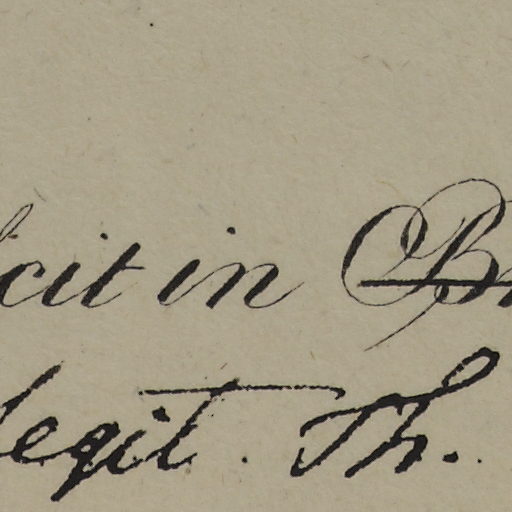 cit in
legit. Th.